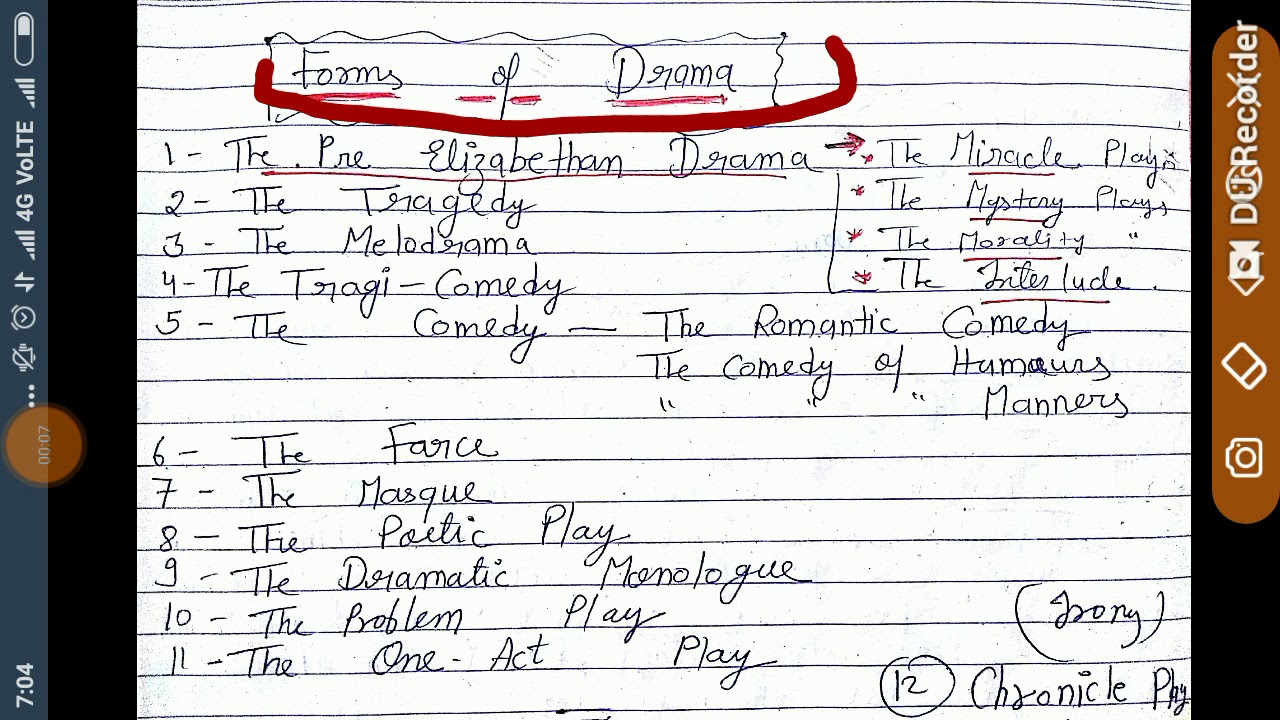 Forms of Drama
1 - The Pre Elizabethan Drama → * The Miracle Plays
2 - The Tragedy * The Mystery Plays
3 - The Melodrama * The Morality "
4 - The Tragi - Comedy * The Interlude.
5 - The Comedy — The Romantic Comedy
The Comedy of Humours
" " " Manners
6 - The Farce
7 - The Masque
8 - The Poetic Play
9 - The Dramatic Monologue
10 - The Problem Play
11 - The One - Act Play
(Irony)
12 Chronicle Play
4G VoLTE
00:07
7:04
DU Recorder